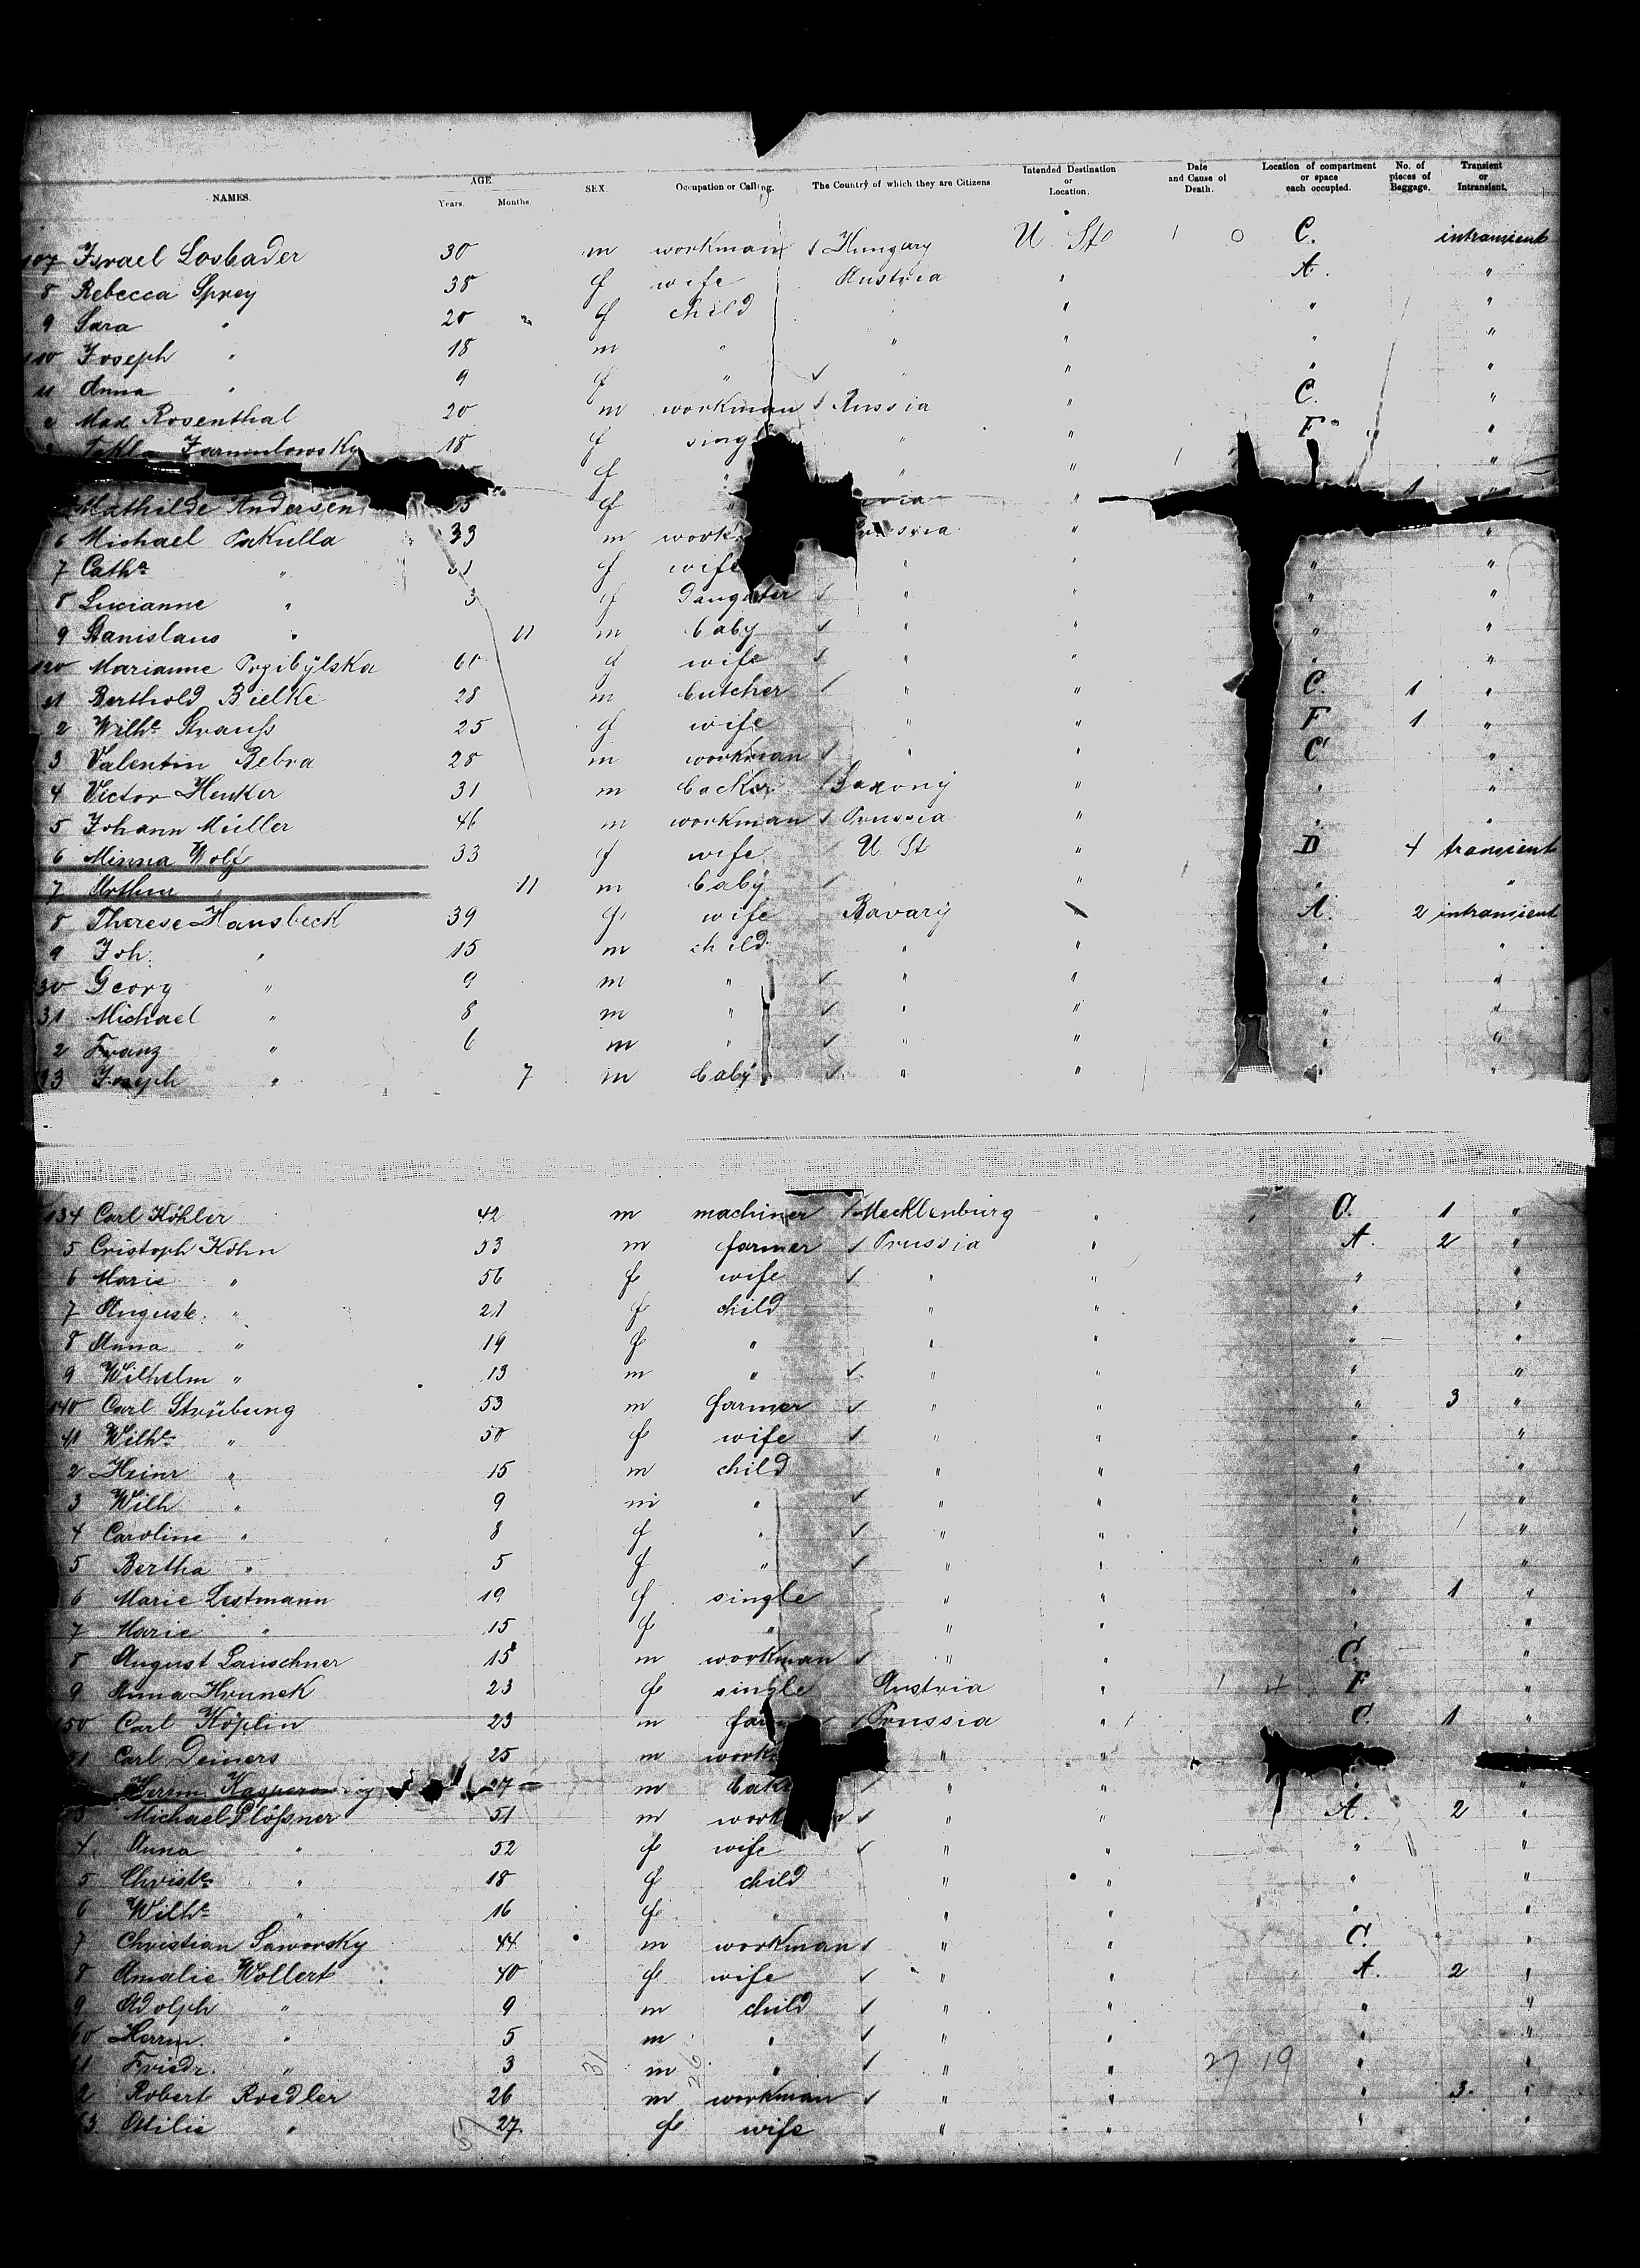 NAMES. AGE Years. Months. SEX. Occupation or Calling. The Country of which they are Citizens Intended Destination or Location. Date and Cause of Death. Location of compartment or space each occupied. No. of pieces of Baggage. Transient or Intransient.
107 Israel Losbader 30 m workman Hungary U. St. 1 0 C. intransient
8 Rebecca Sprey 38 f wife Austria " A. "
9 Sara " 20 f child " " " "
110 Joseph " 18 m " " " " "
11 Anna " 9 f " " " " "
2 Max Rosenthal 20 m workman Russia " C. "
18 f " " F "
f " " " 1 "
Mathilde Andersen f " "
6 Michael Pakulla 33 m "
7 Cathe " f wife " " " "
8 Lucianne " 3 f daughter " " " "
9 Stanislaus " 11 m baby " " " "
120 Marianne Przibÿlska 60 f wife " " " "
21 Berthold Bielke 28 m butcher " " C. 1 "
2 Wilhe Strauss 25 f wife " " F 1 "
3 Valentin Bebra 28 m workman " " C "
4 Victor Henker 31 m backer Saxony " " "
5 Johann Müller 46 m workman Prussia " " "
6 Minna Wolf 33 f wife U. St " D 4 transient
7 Arthur " 11 m baby " " " "
8 Therese Hansbeck 39 f wife Bavarÿ " A. 2 intransient
9 Joh. " 15 m child " " " "
30 Georg " 9 m " " " " "
31 Michael " 8 m " " " " "
2 Franz " 6 m " " " " "
33 Joseph " 7 m baby " " " "
134 Carl Köhler 42 m machiner Mecklenburg " C. 1 "
5 Cristoph Köhn 53 m farmer Prussia " A. 2 "
6 Marie " 56 f wife " " " "
7 Auguste " 21 f child " " " "
8 Anna " 19 f " " " " "
9 Wilhelm " 13 m " " " " "
140 Carl Strübung 53 m farmer " " " 3 "
41 Wilhe " 50 f wife " " " "
2 Heinr " 15 m child " " " "
3 Wilh " 9 m " " " " "
4 Caroline " 8 f " " " " "
5 Bertha " 5 f " " " " "
6 Marie Lestmann 19 f single " " " 1 "
7 Marie " 15 f " " " " "
8 August Lauschner 15 m workman " " C. "
9 Anna Hrunek 23 f single Austria " 1 4 F "
150 Carl Köplin 23 m Prussia " C. 1 "
51 Carl Deiners 25 m " " "
Herrm 27 m " " " "
3 Michael Plössner 51 m " " A. 2 "
4 Anna " 52 f wife " " " "
5 Christe " 18 f child " " " "
6 Wilhe " 16 f " " " " "
7 Christian Saworsky 44 m workman " " C. "
8 Amalie Wollert 40 f wife " " A. 2 "
9 Adolph " 9 m child " " " "
60 Herrm. " 5 m " " " " "
61 Friedr. " 3 31 m 26 " " " 27 19 " "
2 Robert Roedler 26 m workman " " " 3 "
63. Ottilie " 57 27 f wife " " " "